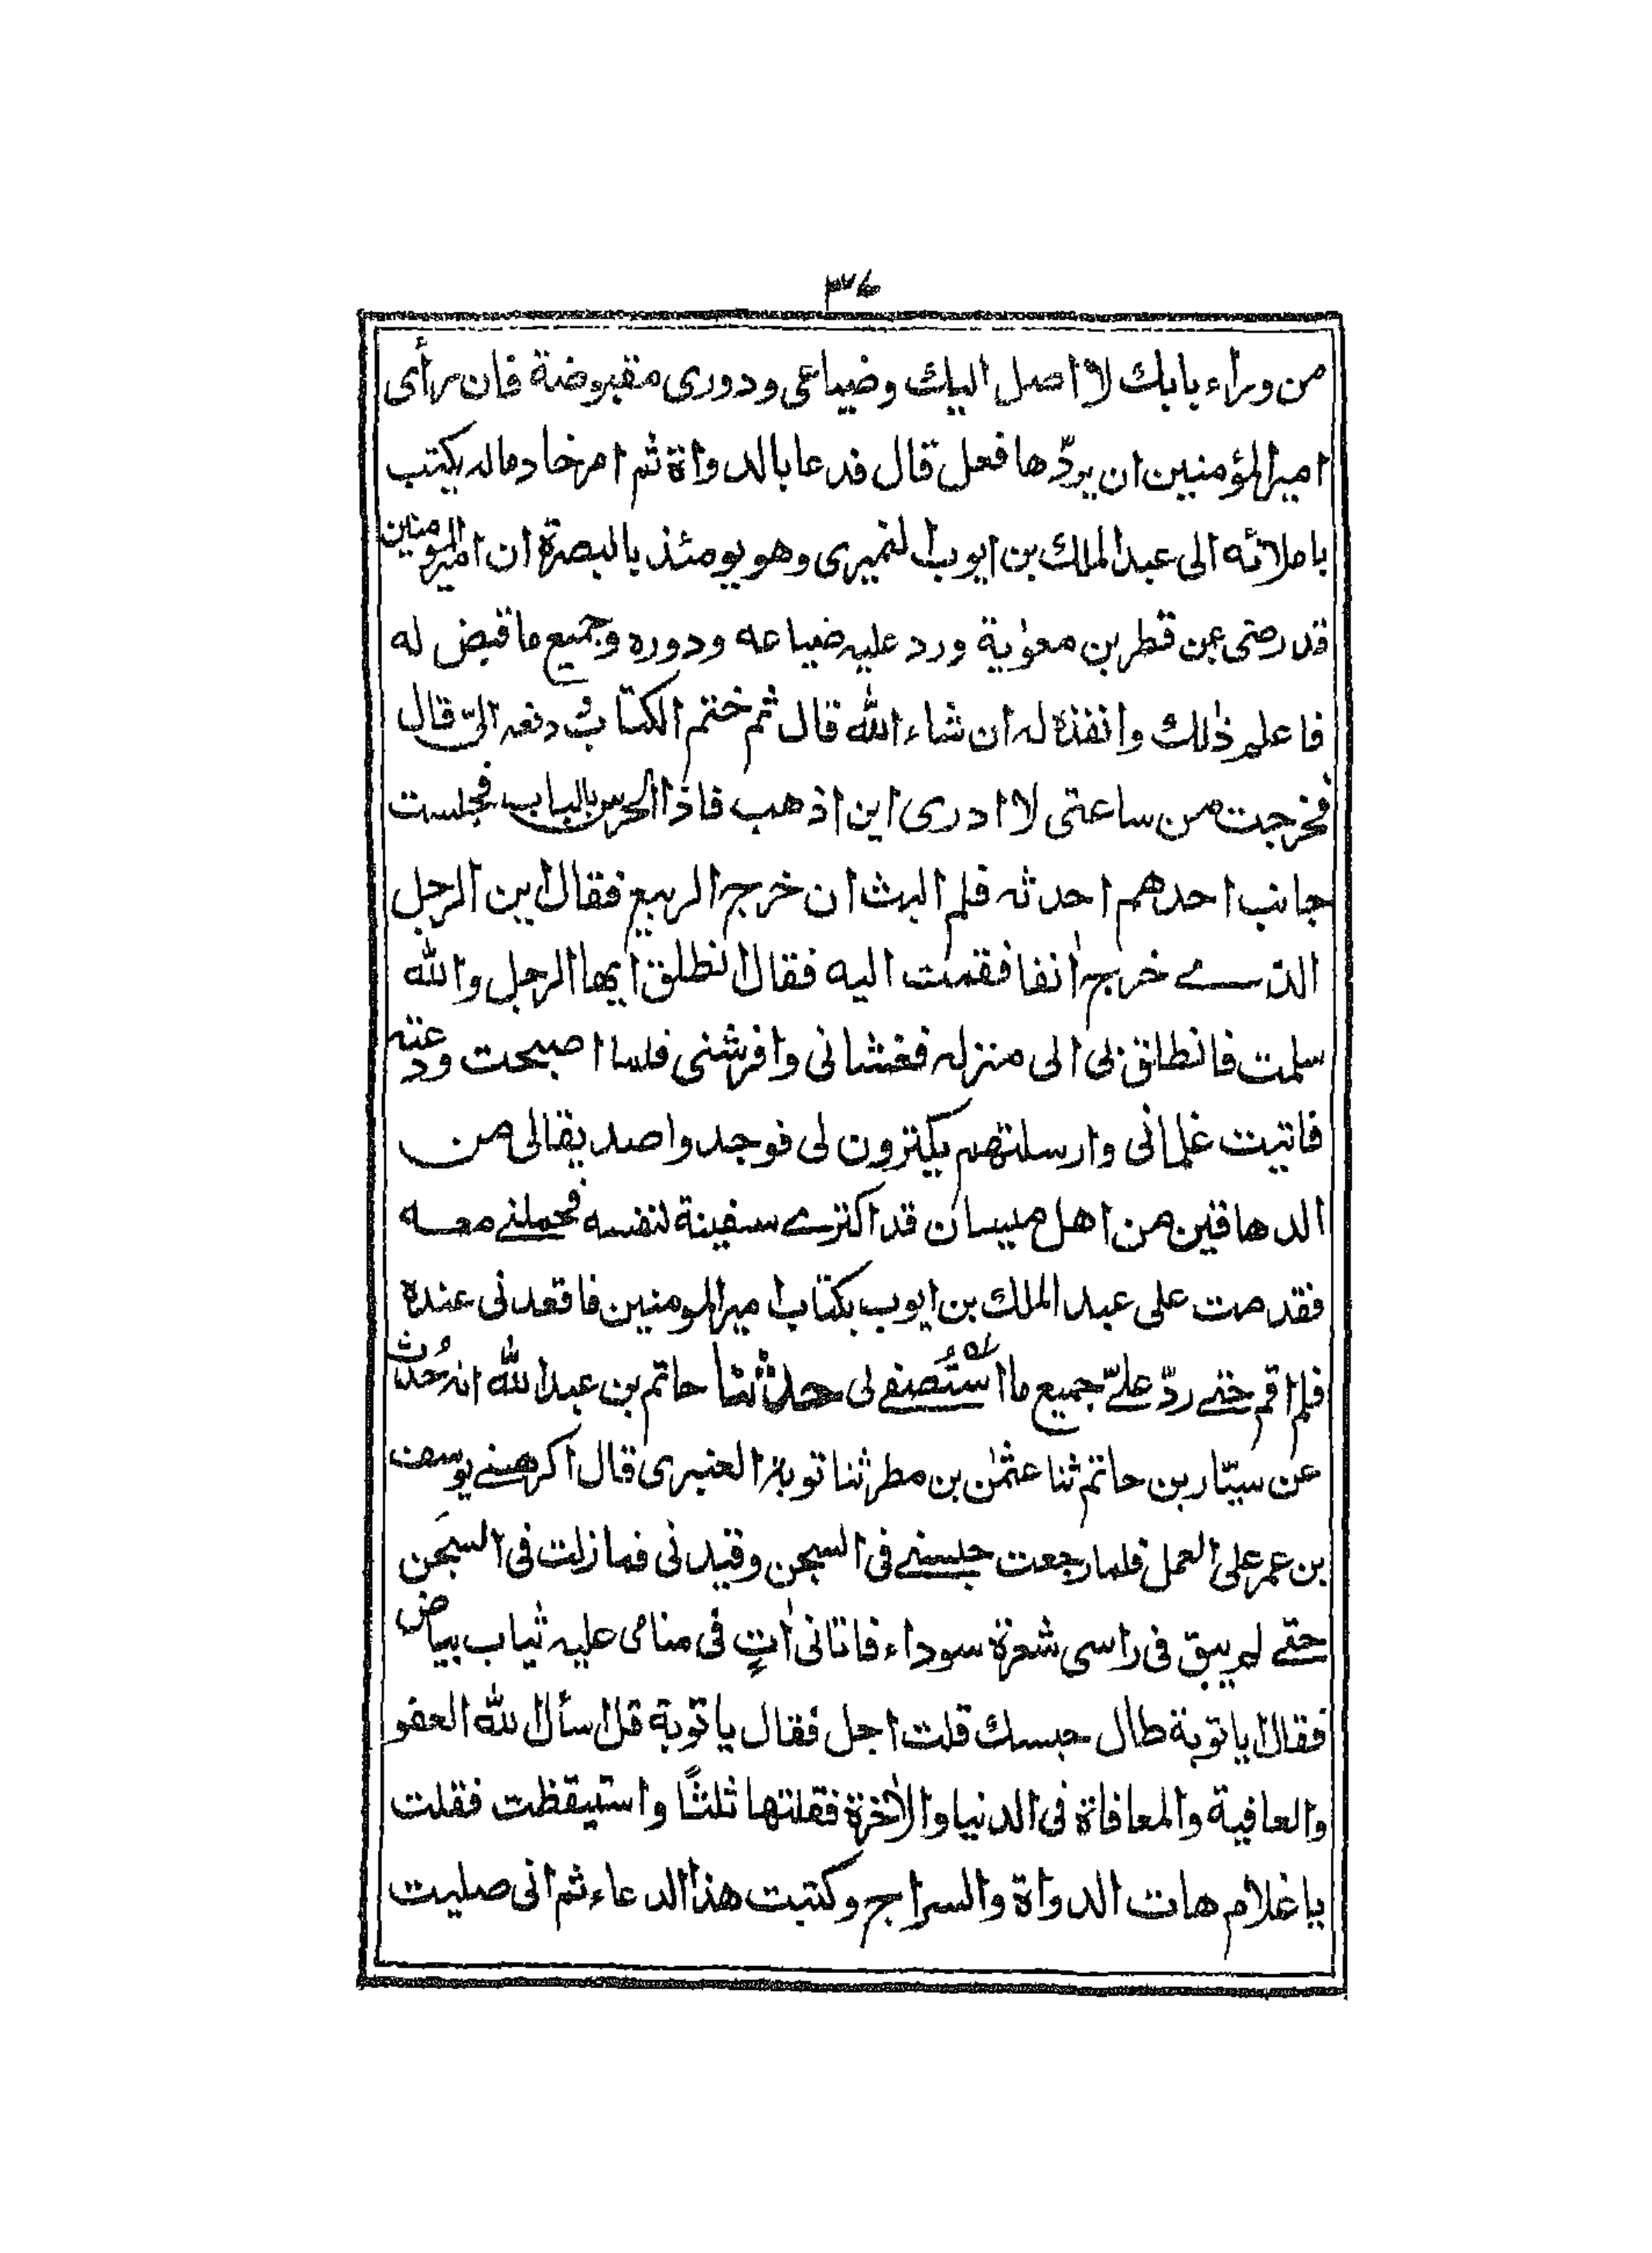 ٣٤
من وراء بابك لا اصل اليك وضياعى ودورى مقبوضة فان رأى
امير المؤمنين ان يردّها فعل قال فدعا بالدواة ثم امر خادما له يكتب
باملائه الى عبد الملك بن ايوب النميرى وهو يومئذ بالبصرة ان امير المومنين
قد رضى عن قطر بن معوٰية ورد عليه ضياعه ودوره وجميع ما قبض له
فاعلم ذٰلك وانفذه له ان شاء الله قال ثم ختم الكتاب و دفعه الىّ قال
فخرجت من ساعتى لا ادرى اين اذهب فاذا الحرس بالباب فجلست
جانب احدهم احدثه فلم البث ان خرج الربيع فقال اين الرجل
الذے خرج اٰنفا فقمت اليه فقال انطلق ايها الرجل والله
سلمت فانطلق بى الى منزله فعشانى وافرشنى فلما اصبحت ودعته
فاتيت غلمانى وارسلتهم يكترون لى فوجدوا صديقا لى من
الدهاقين من اهل ميسان قد اكترے سفينة لنفسه فحملنے معه
فقدمت على عبد الملك بن ايوب بكتاب امير المومنين فاقعدنى عنده
فلم اقم حتے ردّ علےّ جميع ما استُصفے لى حدثنا حاتم بن عبد الله انه حُدث
عن سيّار بن حاتم ثنا عثمٰن بن مطر ثنا توبة العنبرى قال اكرهنے يوسف
بن عمر على العمل فلما رجعت حبسنے فى السجن وقيدنى فما زلت فى السجن
حتے لم يبق فى راسى شعرة سوداء فاتانى اٰتٍ فى منامى عليه ثياب بياض
فقال يا توبة طال حبسك قلت اجل فقال يا توبة قل اسأل الله العفو
والعافية والمعافاة فى الدنيا والاٰخرة فقلتها ثلثًا واستيقظت فقلت
يا غلام هات الدواة والسراج وكتبت هذا الدعاء ثم انى صليت